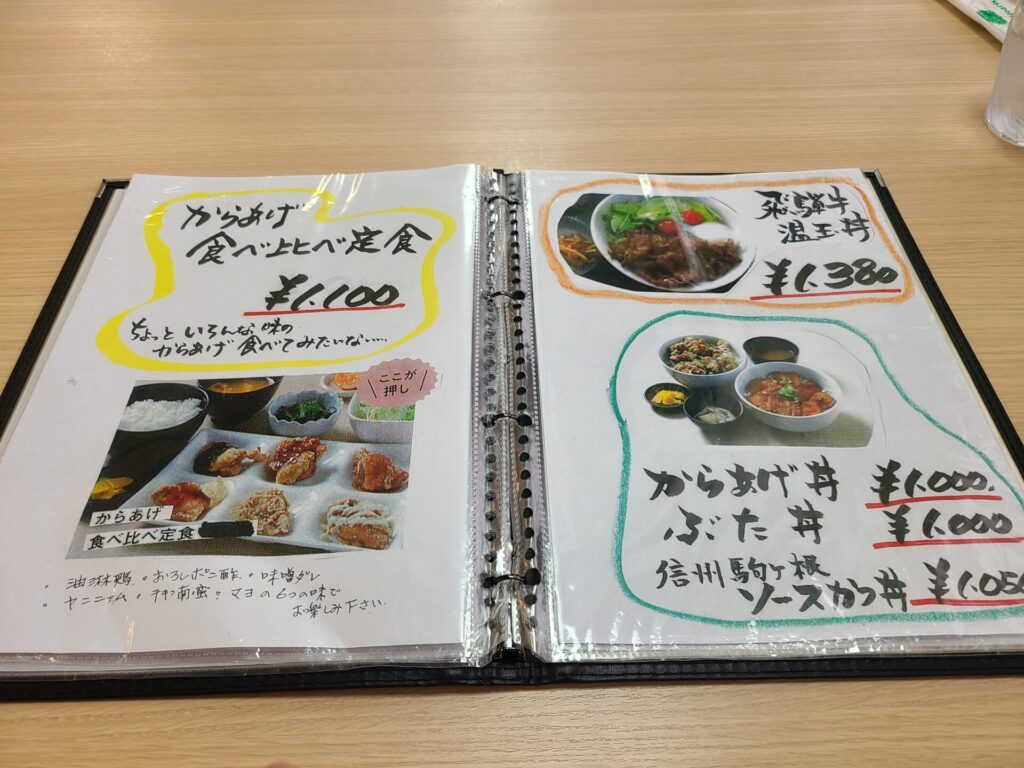 からあげ
食べ比べ定食
¥1,100
ちょっと いろんな 味の
からあげ 食べてみたいな……
ここが
押し
からあげ
食べ比べ定食
・油淋鶏 ・おろしポン酢 ・味噌ダレ
・ヤンニョム ・チキン南蛮 ・マヨ の6つの味で
お楽しみ下さい
飛騨牛
温玉丼
¥1,380
からあげ丼 ¥1,000.
ぶた丼 ¥1,000
信州駒ヶ根
ソースカツ丼 ¥1,050